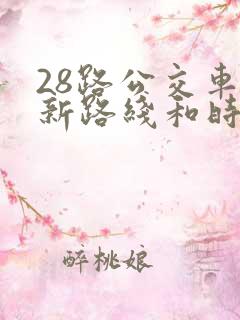 28路公交車
新路綫和時
醉桃娘